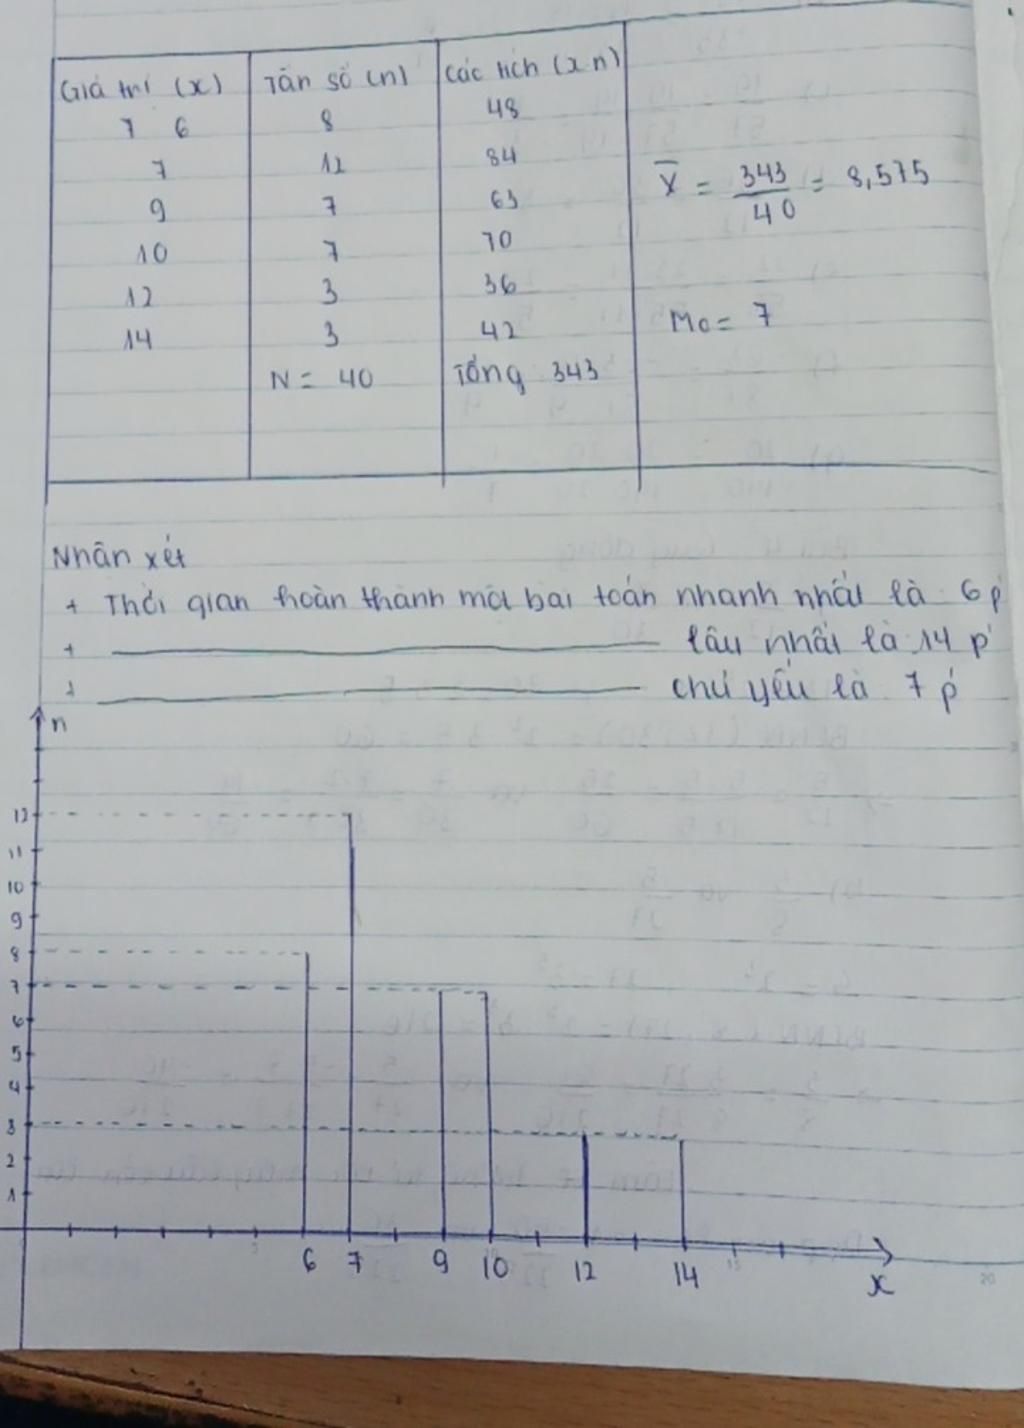 Giá trị (x) Tần số (n) Các tích (x n)
7 6 8 48
7 12 84
9 7 63
10 7 70
12 3 36
14 3 42
N = 40 Tổng 343
X = 343/40 = 8,575
Mo = 7
Nhận xét
+ Thời gian hoàn thành một bài toán nhanh nhất là 6 p'
+ lâu nhất là 14 p'
+ chủ yếu là 7 p'
n
12
11
10
9
8
7
6
5
4
3
2
1
6 7 9 10 12 14
x